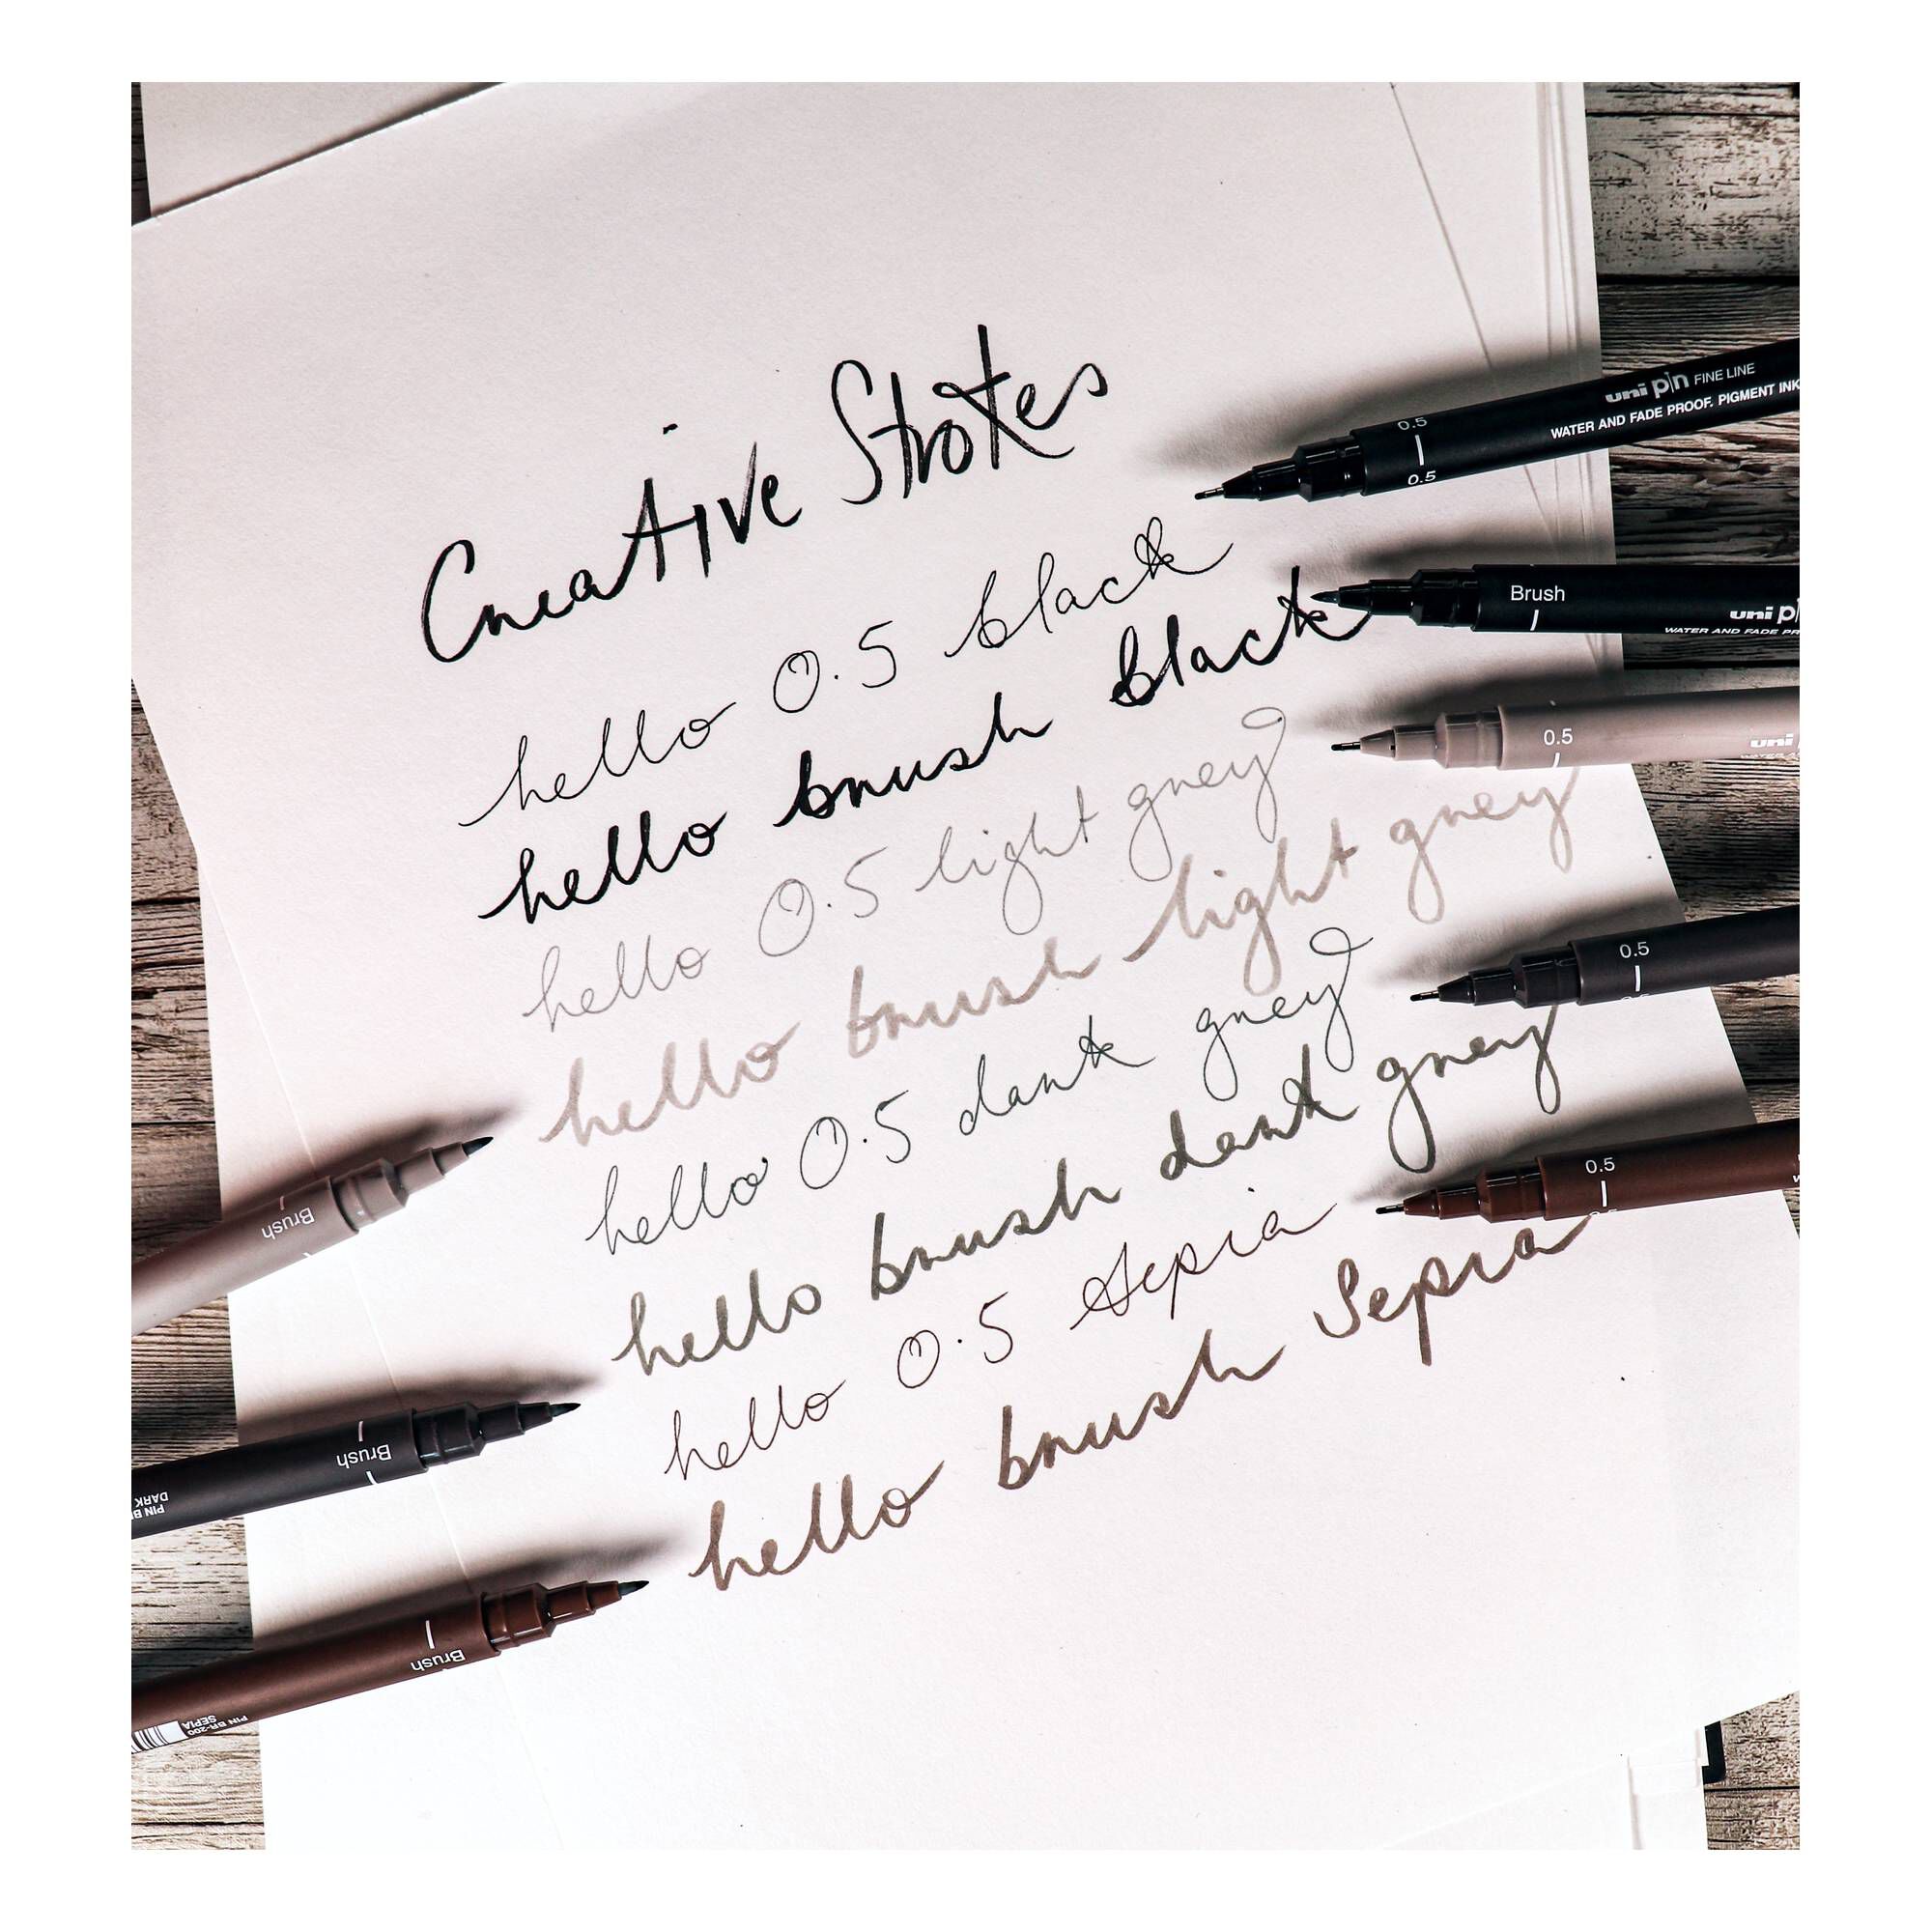 Creative Strokes
hello 0.5 black
hello brush black
hello 0.5 light grey
hello brush light grey
hello 0.5 dark grey
hello brush dark grey
hello 0.5 Sepia
hello brush Sepia
uni pin FINE LINE
WATER AND FADE PROOF. PIGMENT INK
0.5
0.5
Brush
uni pin
WATER AND FADE
0.5
uni
0.5
0.5
Brush
Brush
PIN
DARK
Brush
PIN BR-200
SEPIA